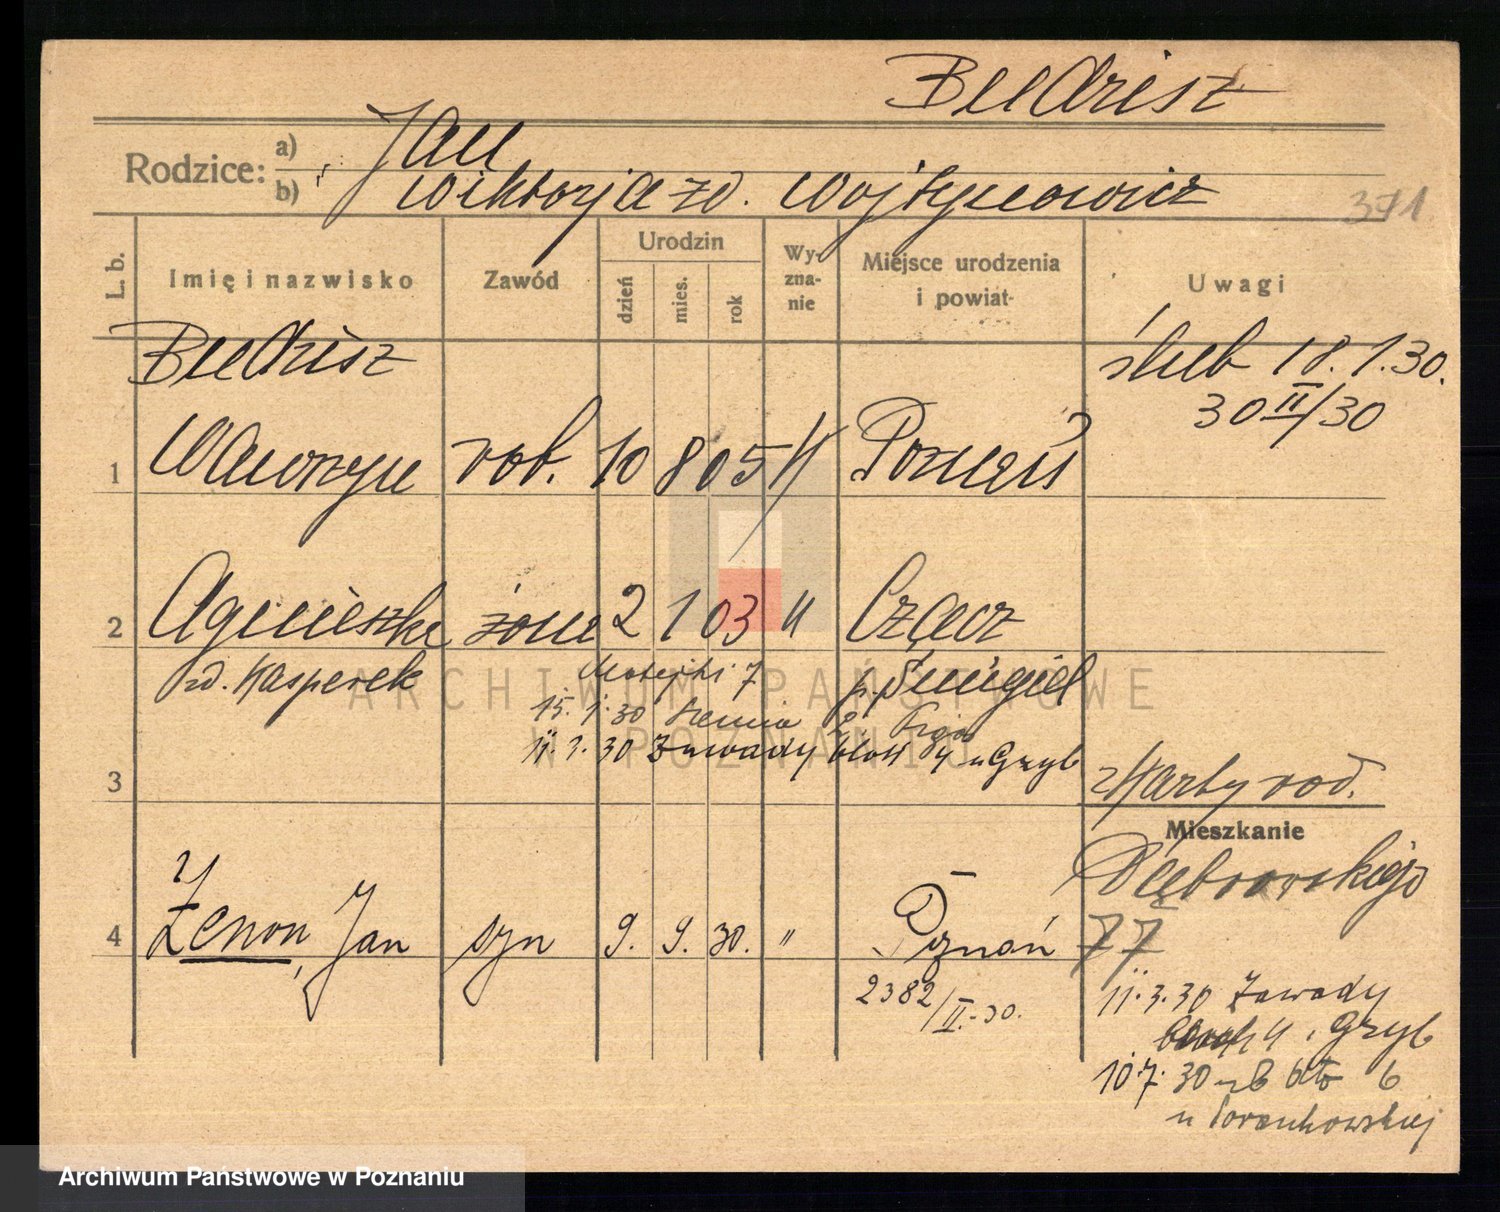 Budzisz
Rodzice: a) Jan
b) Wiktorja zd. Wojtynowicz
371
L. b. Imię i nazwisko Zawód Urodzin dzień mies. rok Wyznanie Miejsce urodzenia i powiat Uwagi
Budzisz
ślub 18.1.30.
30 II/30
1 Wawrzyn rob. 10 8 05 Poznań
2 Agnieszka żona 2 1 03 " Czacz
zd. Kasperek p. Śmigiel
Matejki 7
15.1.30
11.3.30 Zawady 4 u Gryb
3
z Karty rod.
Mieszkanie
Dąbrowskiego
77
4 Zenon, Jan syn 9. 9. 30. " Poznań
2382/II.-30.
11.3.30 Zawady
4, Gryb
10.7.30 6
u
ARCHIWUM PAŃSTWOWE
W POZNANIU
Archiwum Państwowe w Poznaniu